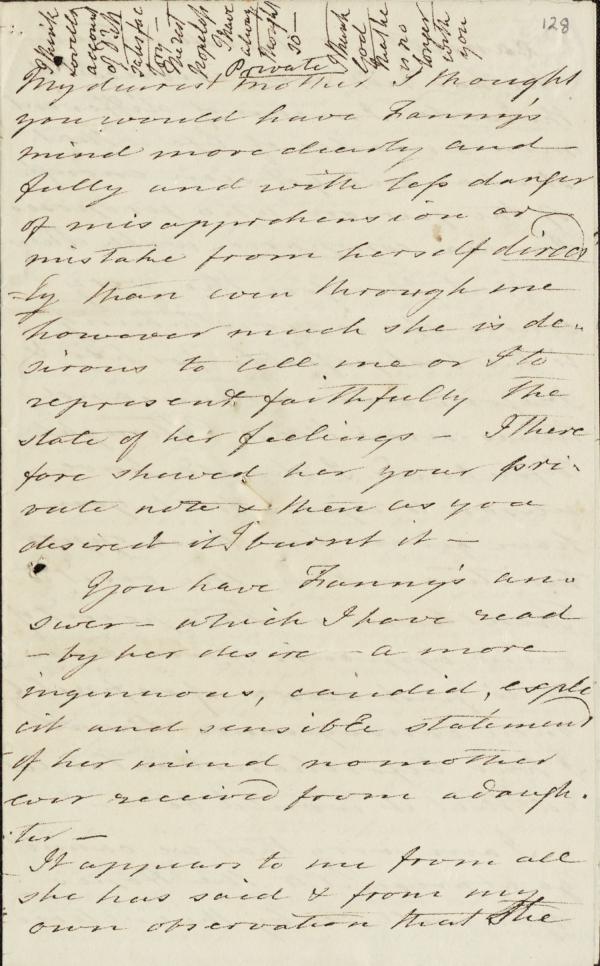 128
I think
Lovells
account
of
relapse
hopeless
I have
always
thought
so —
I think
God
that she
is no
longer
with
you
Private
My dearest mother I thought
you would have Fanny's
mind more clearly and
fully and with less danger
of misapprehension or
mistake from herself direct
-ly than even through me
however much she is de-
sirous to tell me or I to
represent faithfully the
state of her feelings — I there
fore shewed her your pri-
vate note & then as you
desired it I burnt it —
You have Fanny's an-
swer — which I have read
— by her desire — a more
ingenuous, candid, expli
cit and sensible statement
of her mind no mother
ever received from a daugh-
ter —
It appears to me from all
she has said & from my
own observation that she